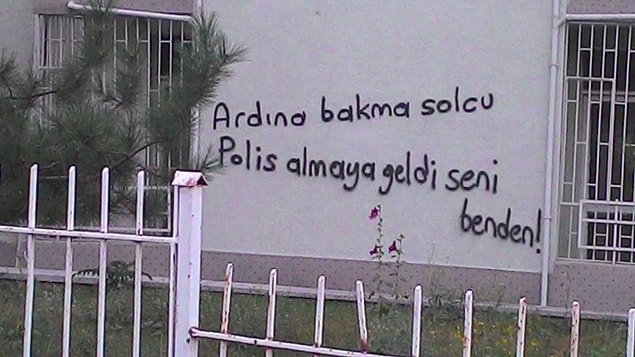 Ardına bakma solcu
Polis almaya geldi seni
benden!